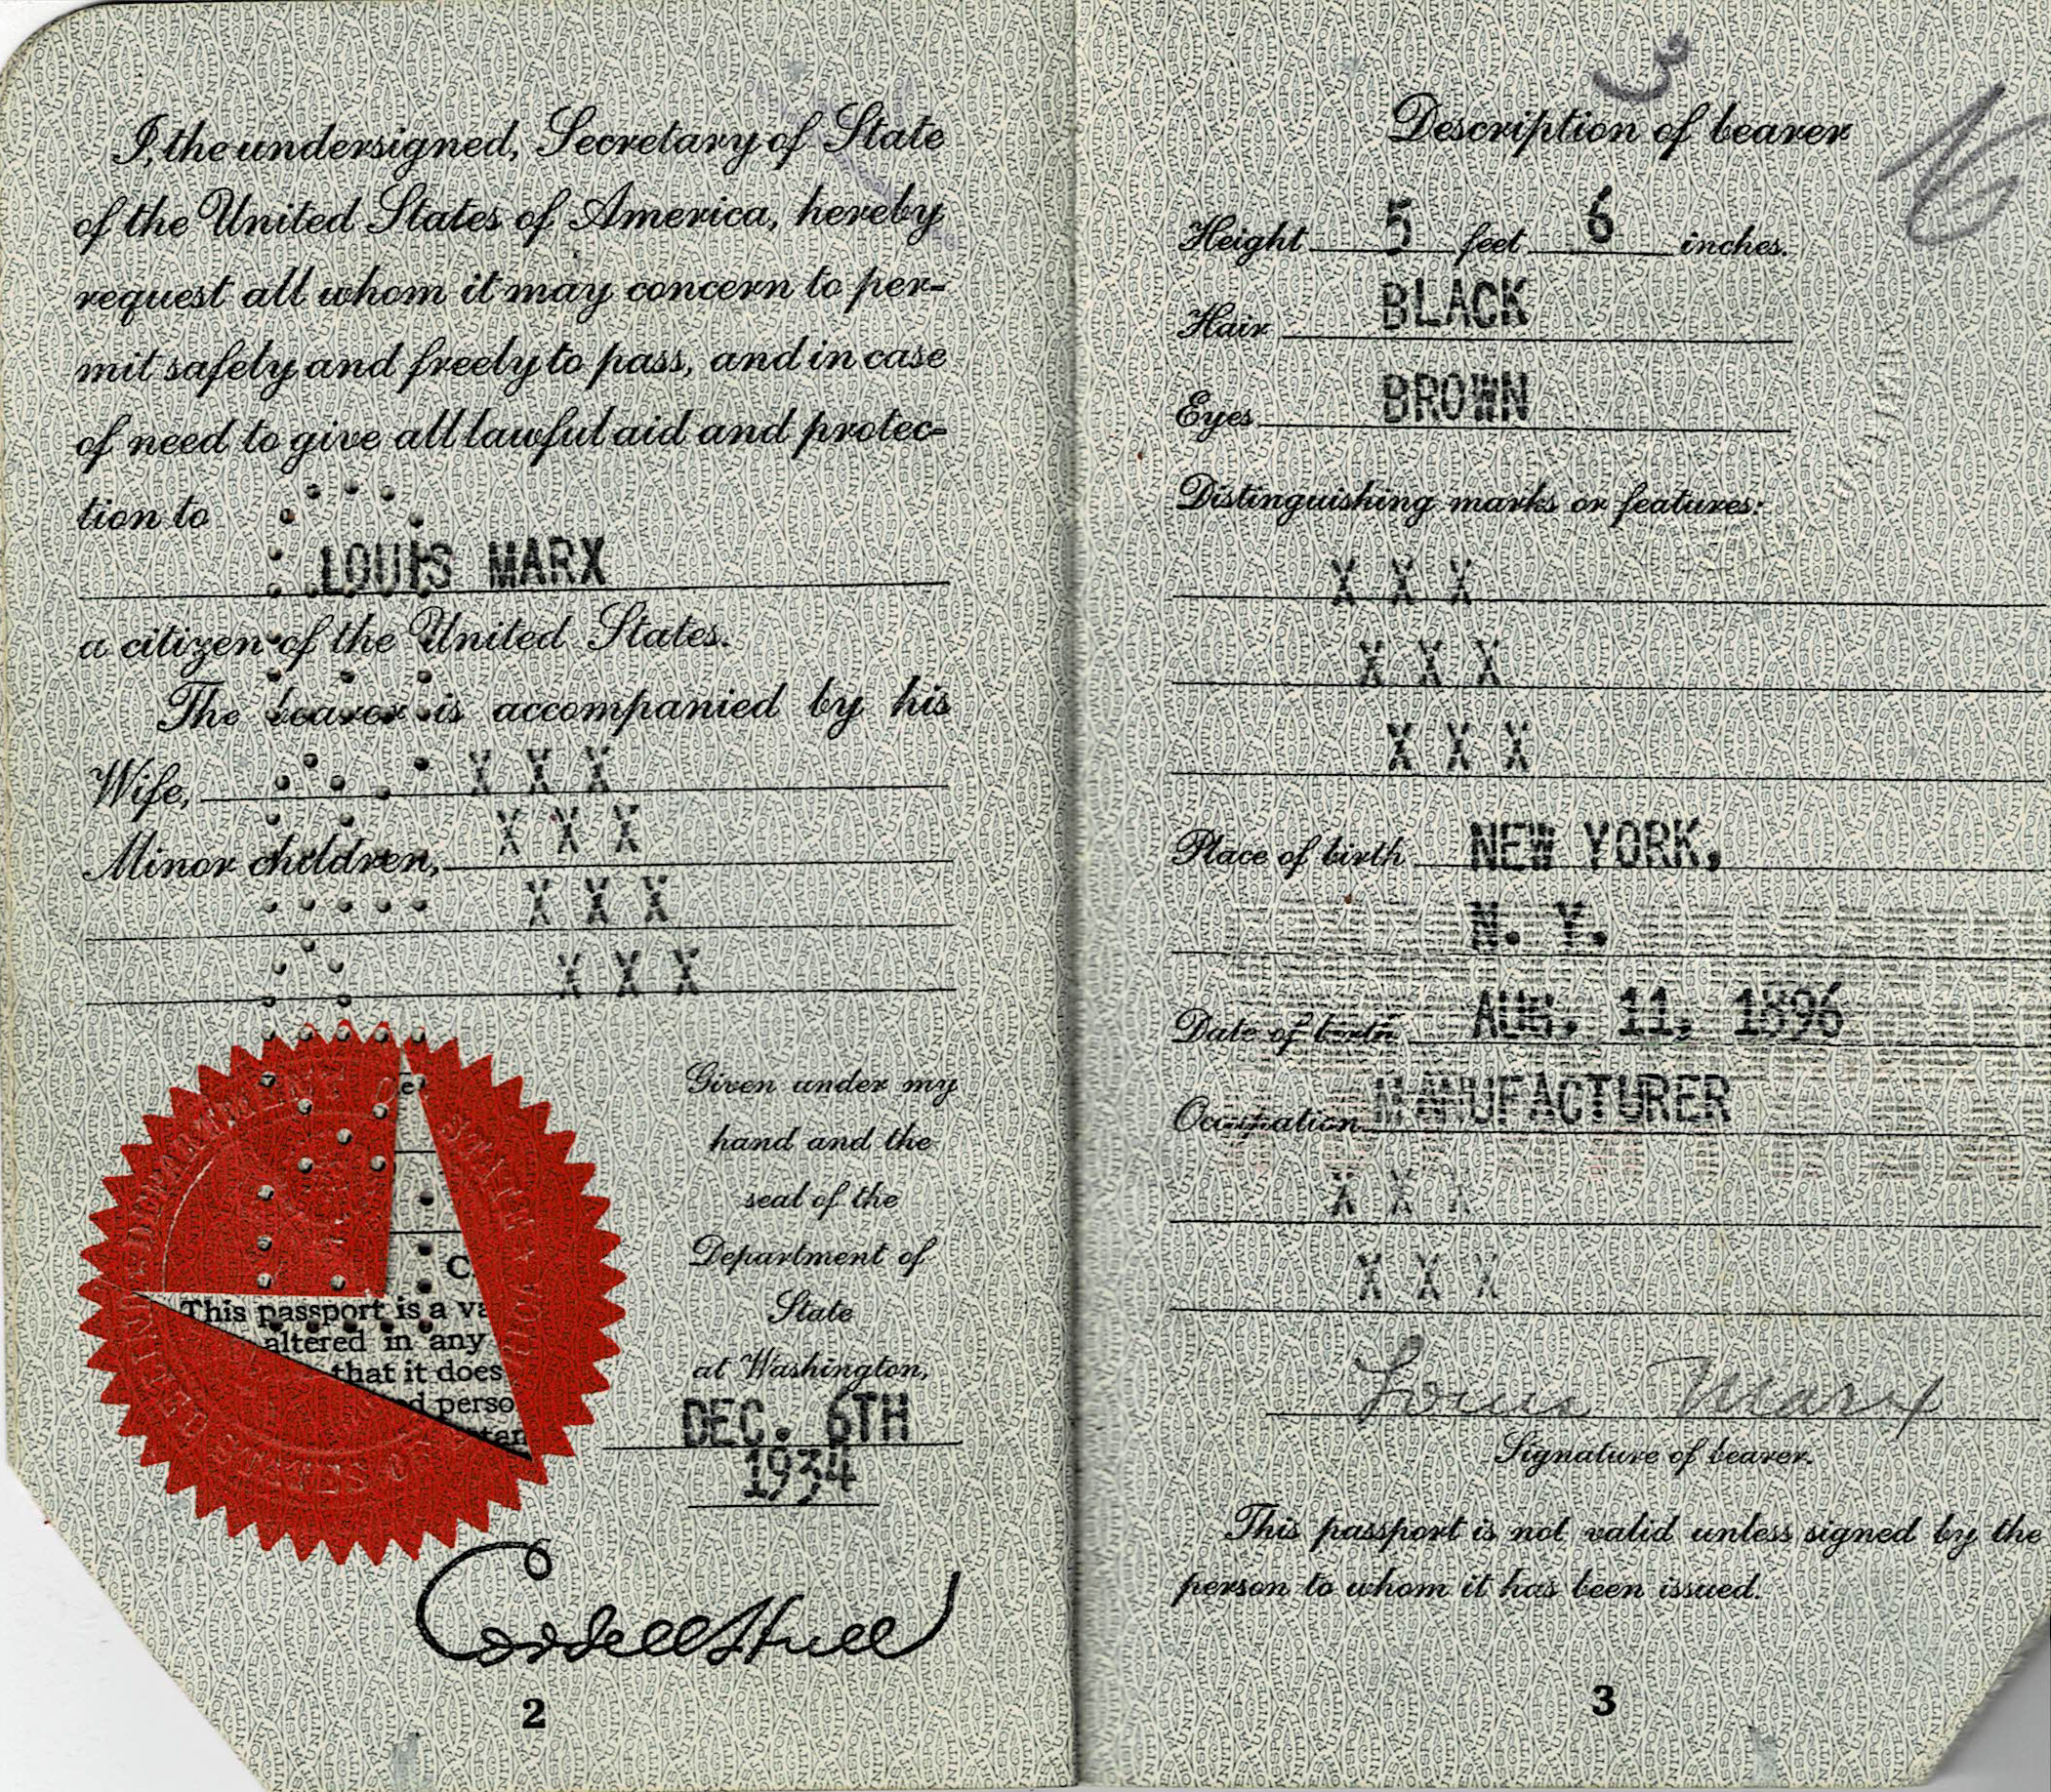 I, the undersigned, Secretary of State
of the United States of America, hereby
request all whom it may concern to per-
mit safely and freely to pass, and in case
of need to give all lawful aid and protec-
tion to
LOUIS MARX
a citizen of the United States.
The bearer is accompanied by his
Wife, X X X
Minor children, X X X
X X X
X X X
Given under my
hand and the
seal of the
Department of
State
at Washington,
DEC. 6TH
1934
DEPARTMENT OF STATE
UNITED STATES OF
This passport is a
altered in any
that it does
Cordell Hull
2
3
16
Description of bearer
Height 5 feet 6 inches.
Hair BLACK
Eyes BROWN
Distinguishing marks or features:
X X X
X X X
X X X
Place of birth NEW YORK,
N. Y.
Date of birth AUG. 11, 1896
Occupation MANUFACTURER
X X X
X X X
Louis Marx
Signature of bearer.
This passport is not valid unless signed by the
person to whom it has been issued.
3